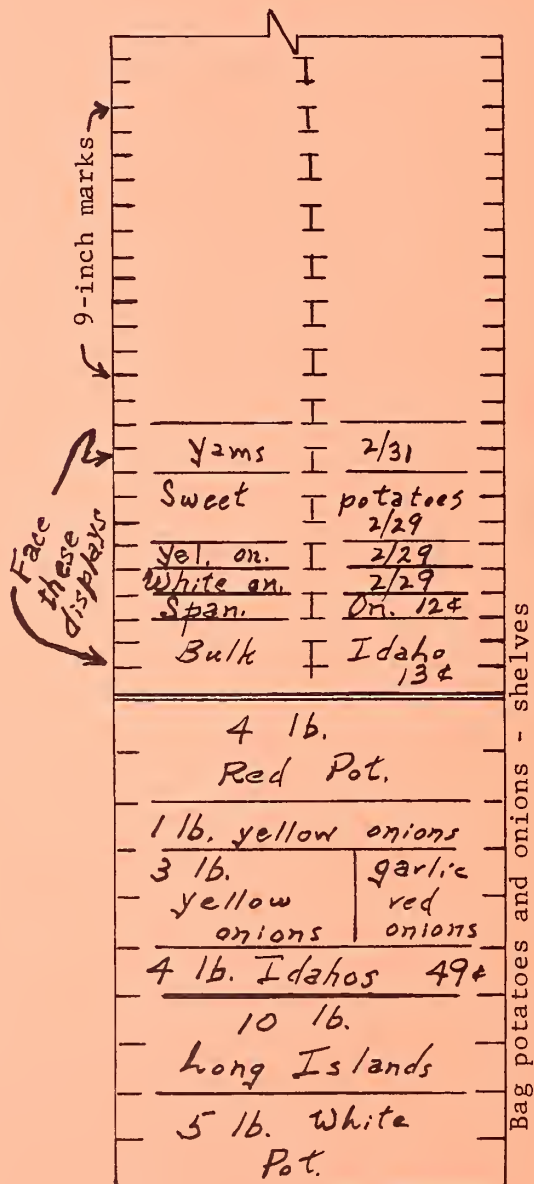 9-inch marks
Face
these
displays
Yams 2/31
Sweet potatoes
2/29
Yel. on. 2/29
White on. 2/29
Span. On. 12¢
Bulk Idaho
13¢
4 lb.
Red Pot.
1 lb. yellow onions
3 lb.
yellow
onions
garlic
red
onions
4 lb. Idahos 49¢
10 lb.
Long Islands
5 lb. White
Pot.
Bag potatoes and onions - shelves